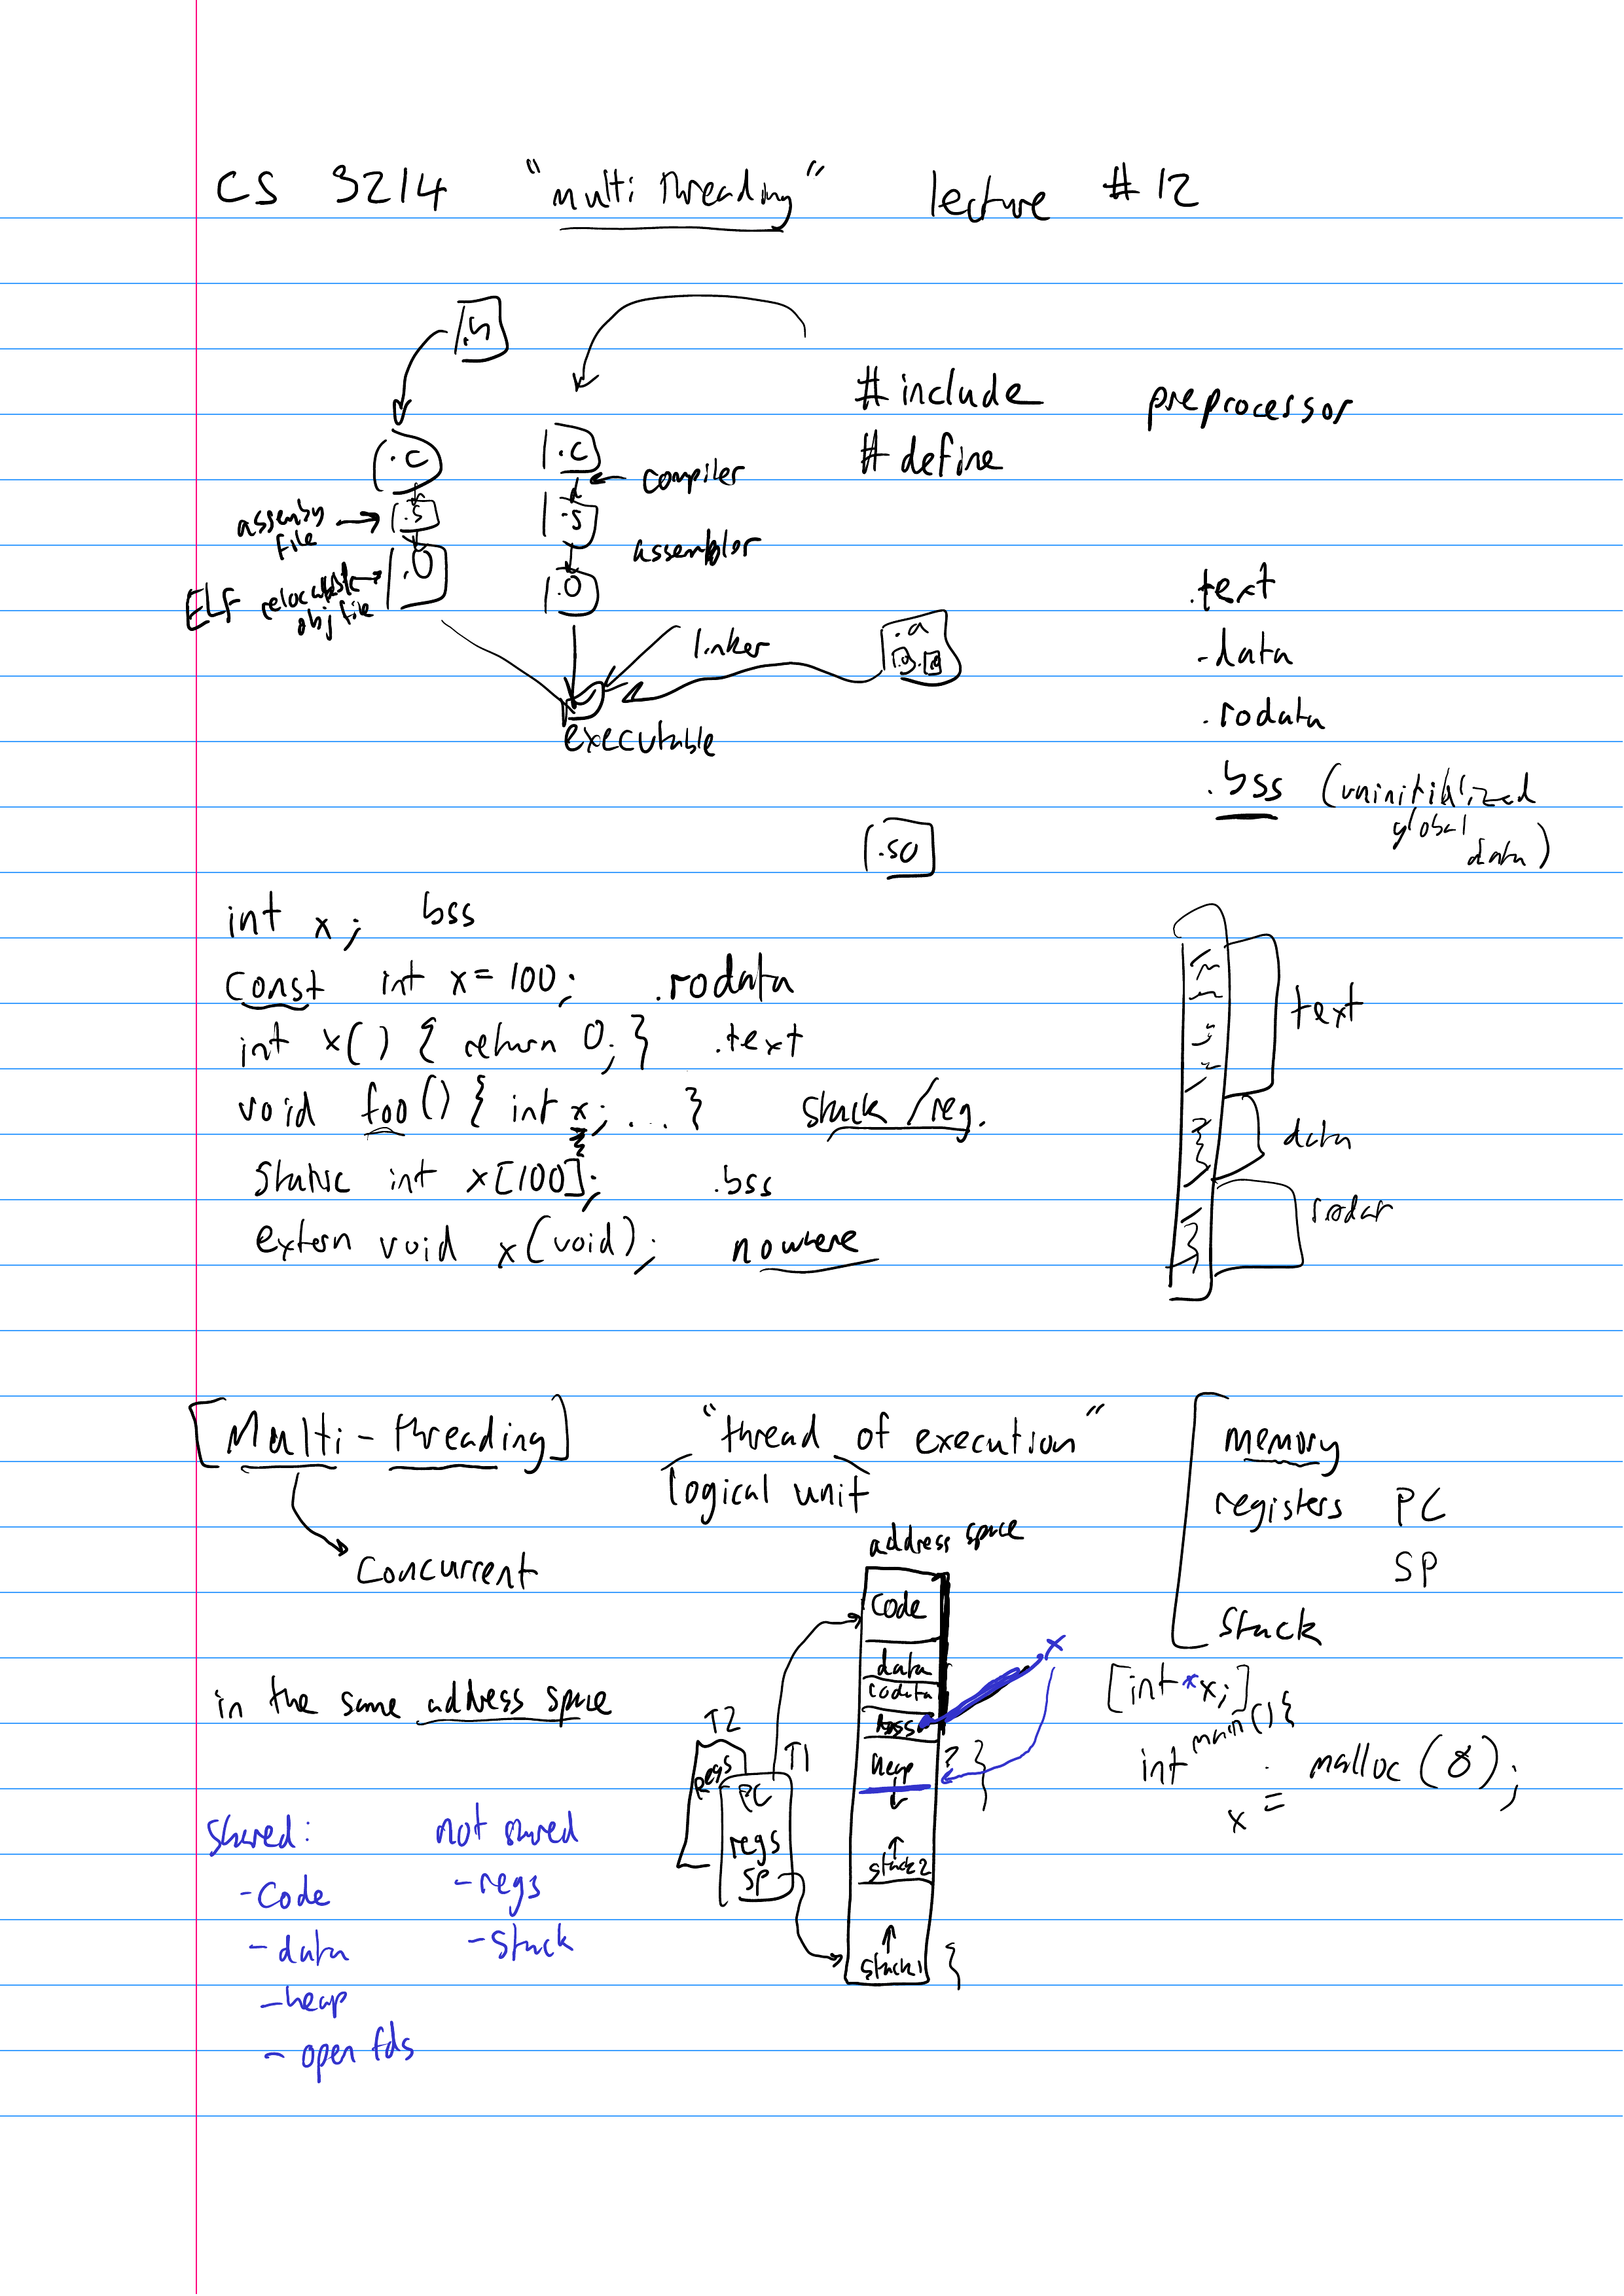 CS 3214 "multi threading" lecture #12
.h
#include preprocessor
#define
.c .c
compiler
assemby file
.s .s
assembler
ELF relocatable obj file
.o .o
linker
.a
.o .o
executable
.text
.data
.rodata
.bss (uninitialized global data)
.so
int x; bss
const int x = 100; .rodata
int x() { return 0; } .text
void foo() { int x; ... } stack/reg.
static int x[100]; .bss
extern void x(void); nowhere
text
data
[Multi-threading] "thread of execution"
logical unit
Concurrent
memory
registers PC
SP
Stack
in the same address space
address space
code
data
rodata
bss
heap ?
stack2
stack1
x
T2
regs
T1
PC
regs
SP
[int *x;]
int main() {
x = malloc(8);
shared:
- code
- data
- heap
- open fds
not shared
- regs
- stack